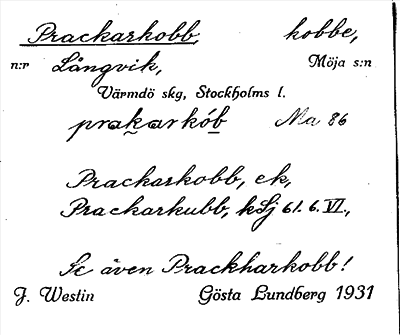 Prackarkobb, kobbe,
n:r Långvik, Möja s:n
Värmdö skg, Stockholms l.
prakarkób Ma 86
Prackarkobb, ek,
Prackarkubb, kSj 61.6.VI.,
Se även Prackharkobb!
J. Westin Gösta Lundberg 1931